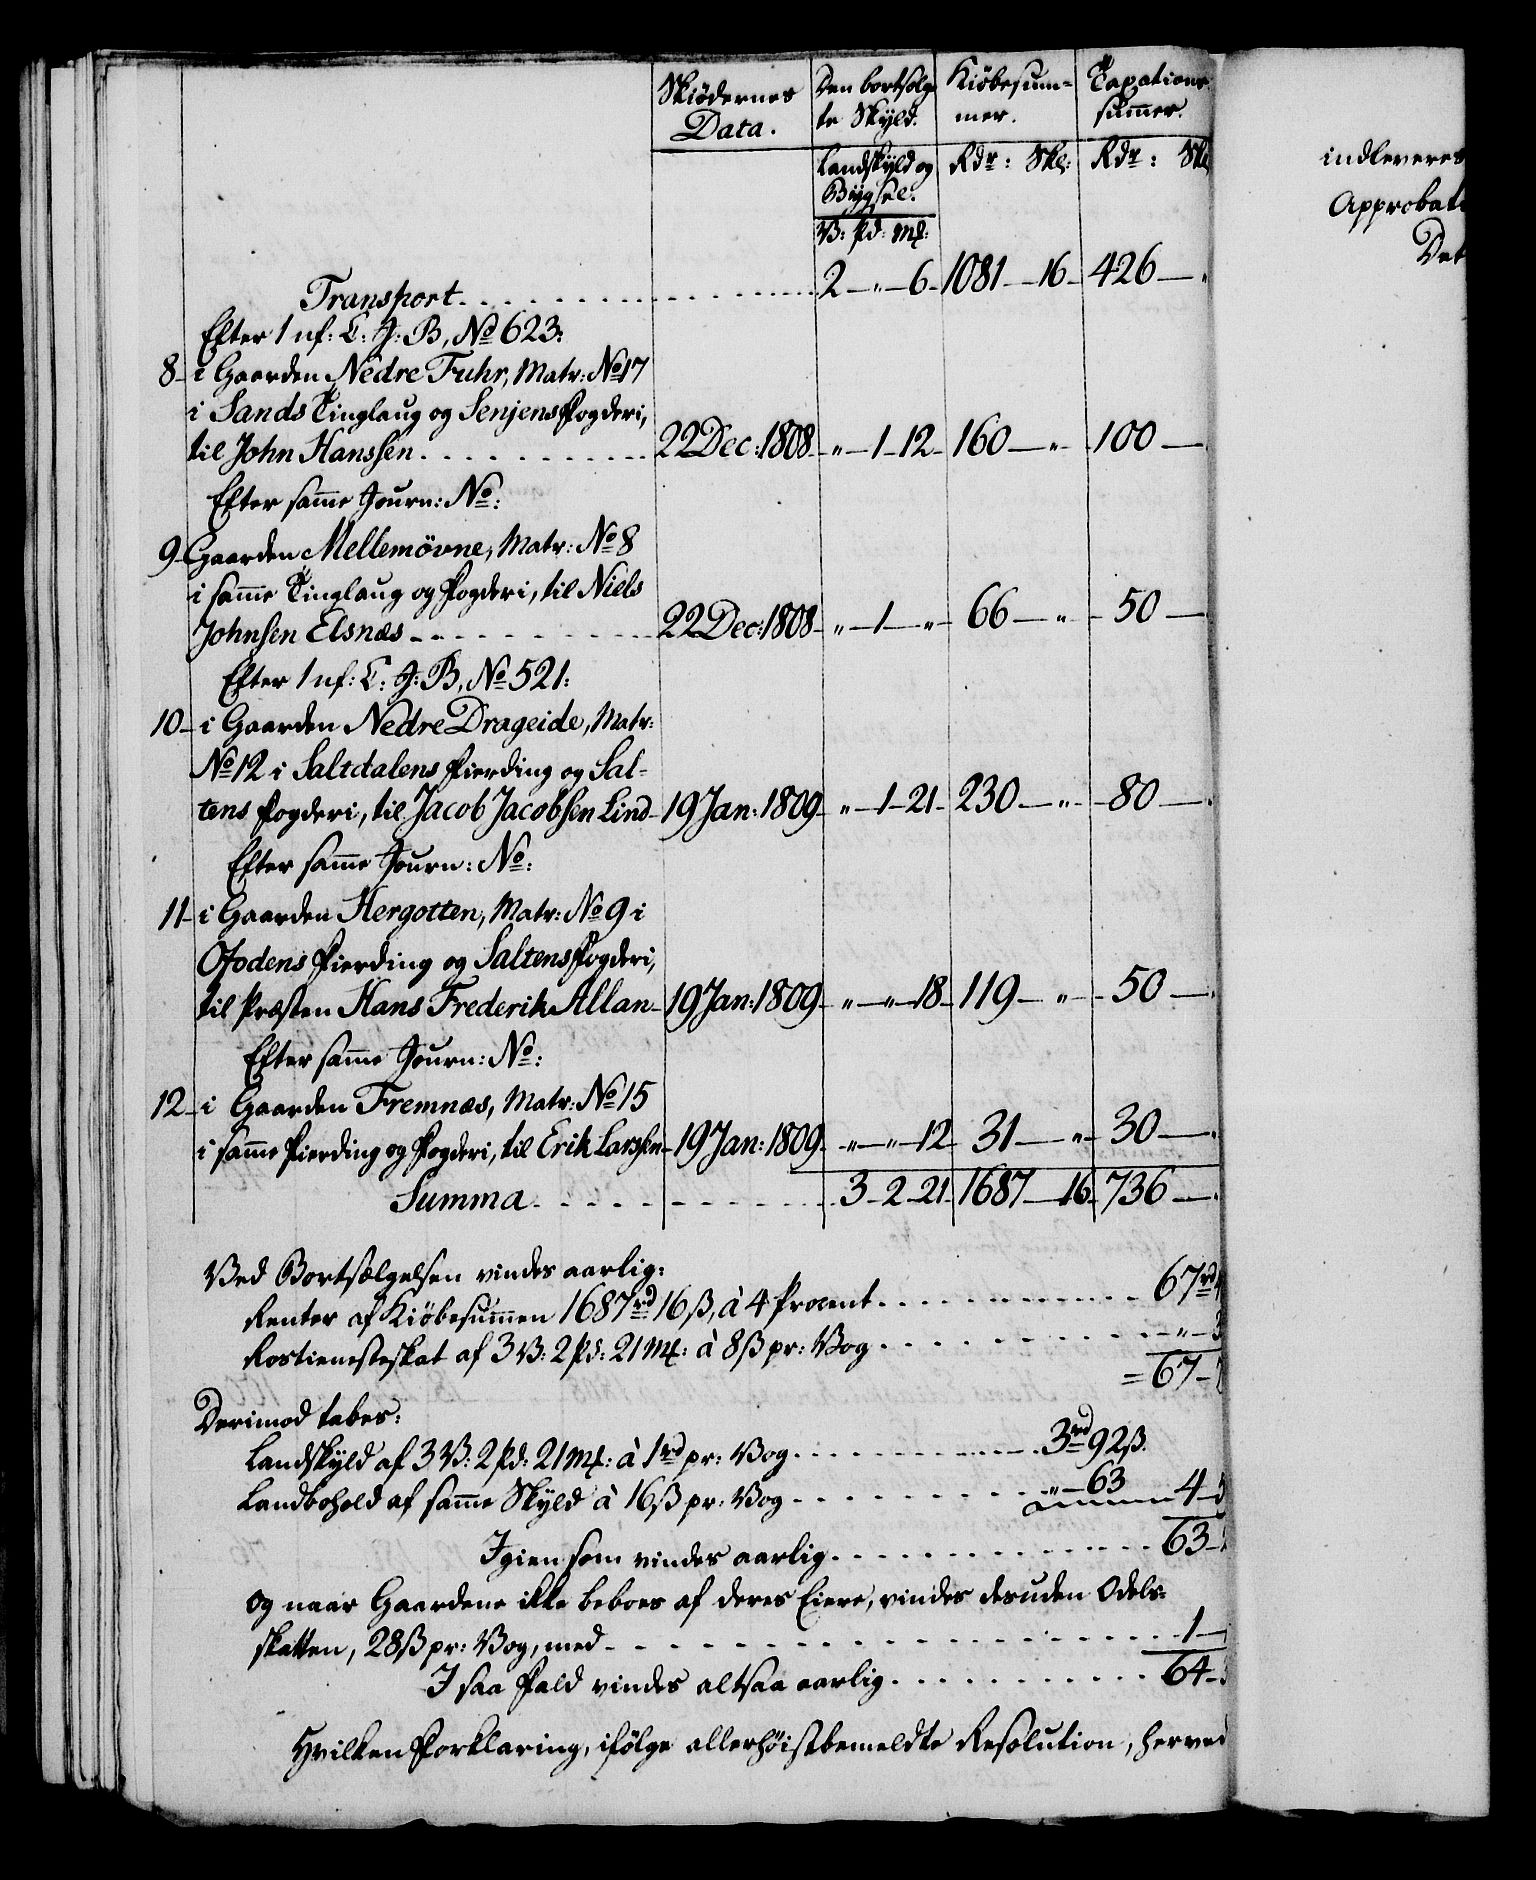 Skiödernes Data.
Den bortsolgte Skyld.
Kiöbesummer.
Taxations summer.
Landskyld og Bygsel.
Rdr: Skl:
Rdr: Skl
V: Pd: Mk:
Transport 2 — " — 6 1081 — 16 426 — "
Efter 1 nf: C: J: B, No 623:
8 i Gaarden Nedre Fuhr, Matr: No 17
i Sands Tinglaug og Senjens Fogderi,
til John Hanssen 22 Dec: 1808 " — 1 — 12 160 — " 100 —
Efter samme Journ: No:
9 Gaarden Mellemövne, Matr: No 8
i samme Tinglaug og Fogderi, til Niels
Johnsen Elsnæs 22 Dec: 1808 " — 1 — " 66 — " 50 —
Efter 1 nf: C: J: B, No 521:
10 i Gaarden Nedre Drageide, Matr:
No 12 i Saltdalens Fierding og Sal-
tens Fogderi, til Jacob Jacobsen Lind 19 Jan: 1809 " — 1 — 21 230 — " 80 —
Efter samme Journ: No:
11 i Gaarden Hergotten, Matr: No 9 i
Ofodens Fierding og Saltens Fogderi,
til Præsten Hans Frederik Allan 19 Jan: 1809 " — " — 18 119 — " 50 —
Efter samme Journ: No:
12 i Gaarden Fremnæs, Matr: No 15
i samme Fierding og Fogderi, til Erik Larssen 19 Jan: 1809 " — " — 12 31 — " 30 —
Summa 3 — 2 — 21 1687 — 16 736 —
Ved Bortsælgelsen vindes aarlig:
Renter af Kiöbesummen 1687 rd 16 ß, à 4 Procent 67 rd
Rostienesteskat af 3 V: 2 Pd: 21 Mk: à 8 ß pr: Vog "
= 67 —
Derimod tabes:
Landskyld af 3 V: 2 Pd: 21 Mk: à 1 rd pr: Vog 3 rd 92 ß.
Landbohold af samme Skyld à 16 ß pr: Vog " — 63 4 —
Igien som vindes aarlig 63 —
og naar Gaardene ikke beboes af deres Eiere, vindes desuden Odels-
skatten, 28 ß pr: Vog, med 1 —
I saa Fald vindes altsaa aarlig 64 —
Hvilken Forklaring, ifölge allerhöistbemeldte Resolution, herved
indleveres
Approbati
Det